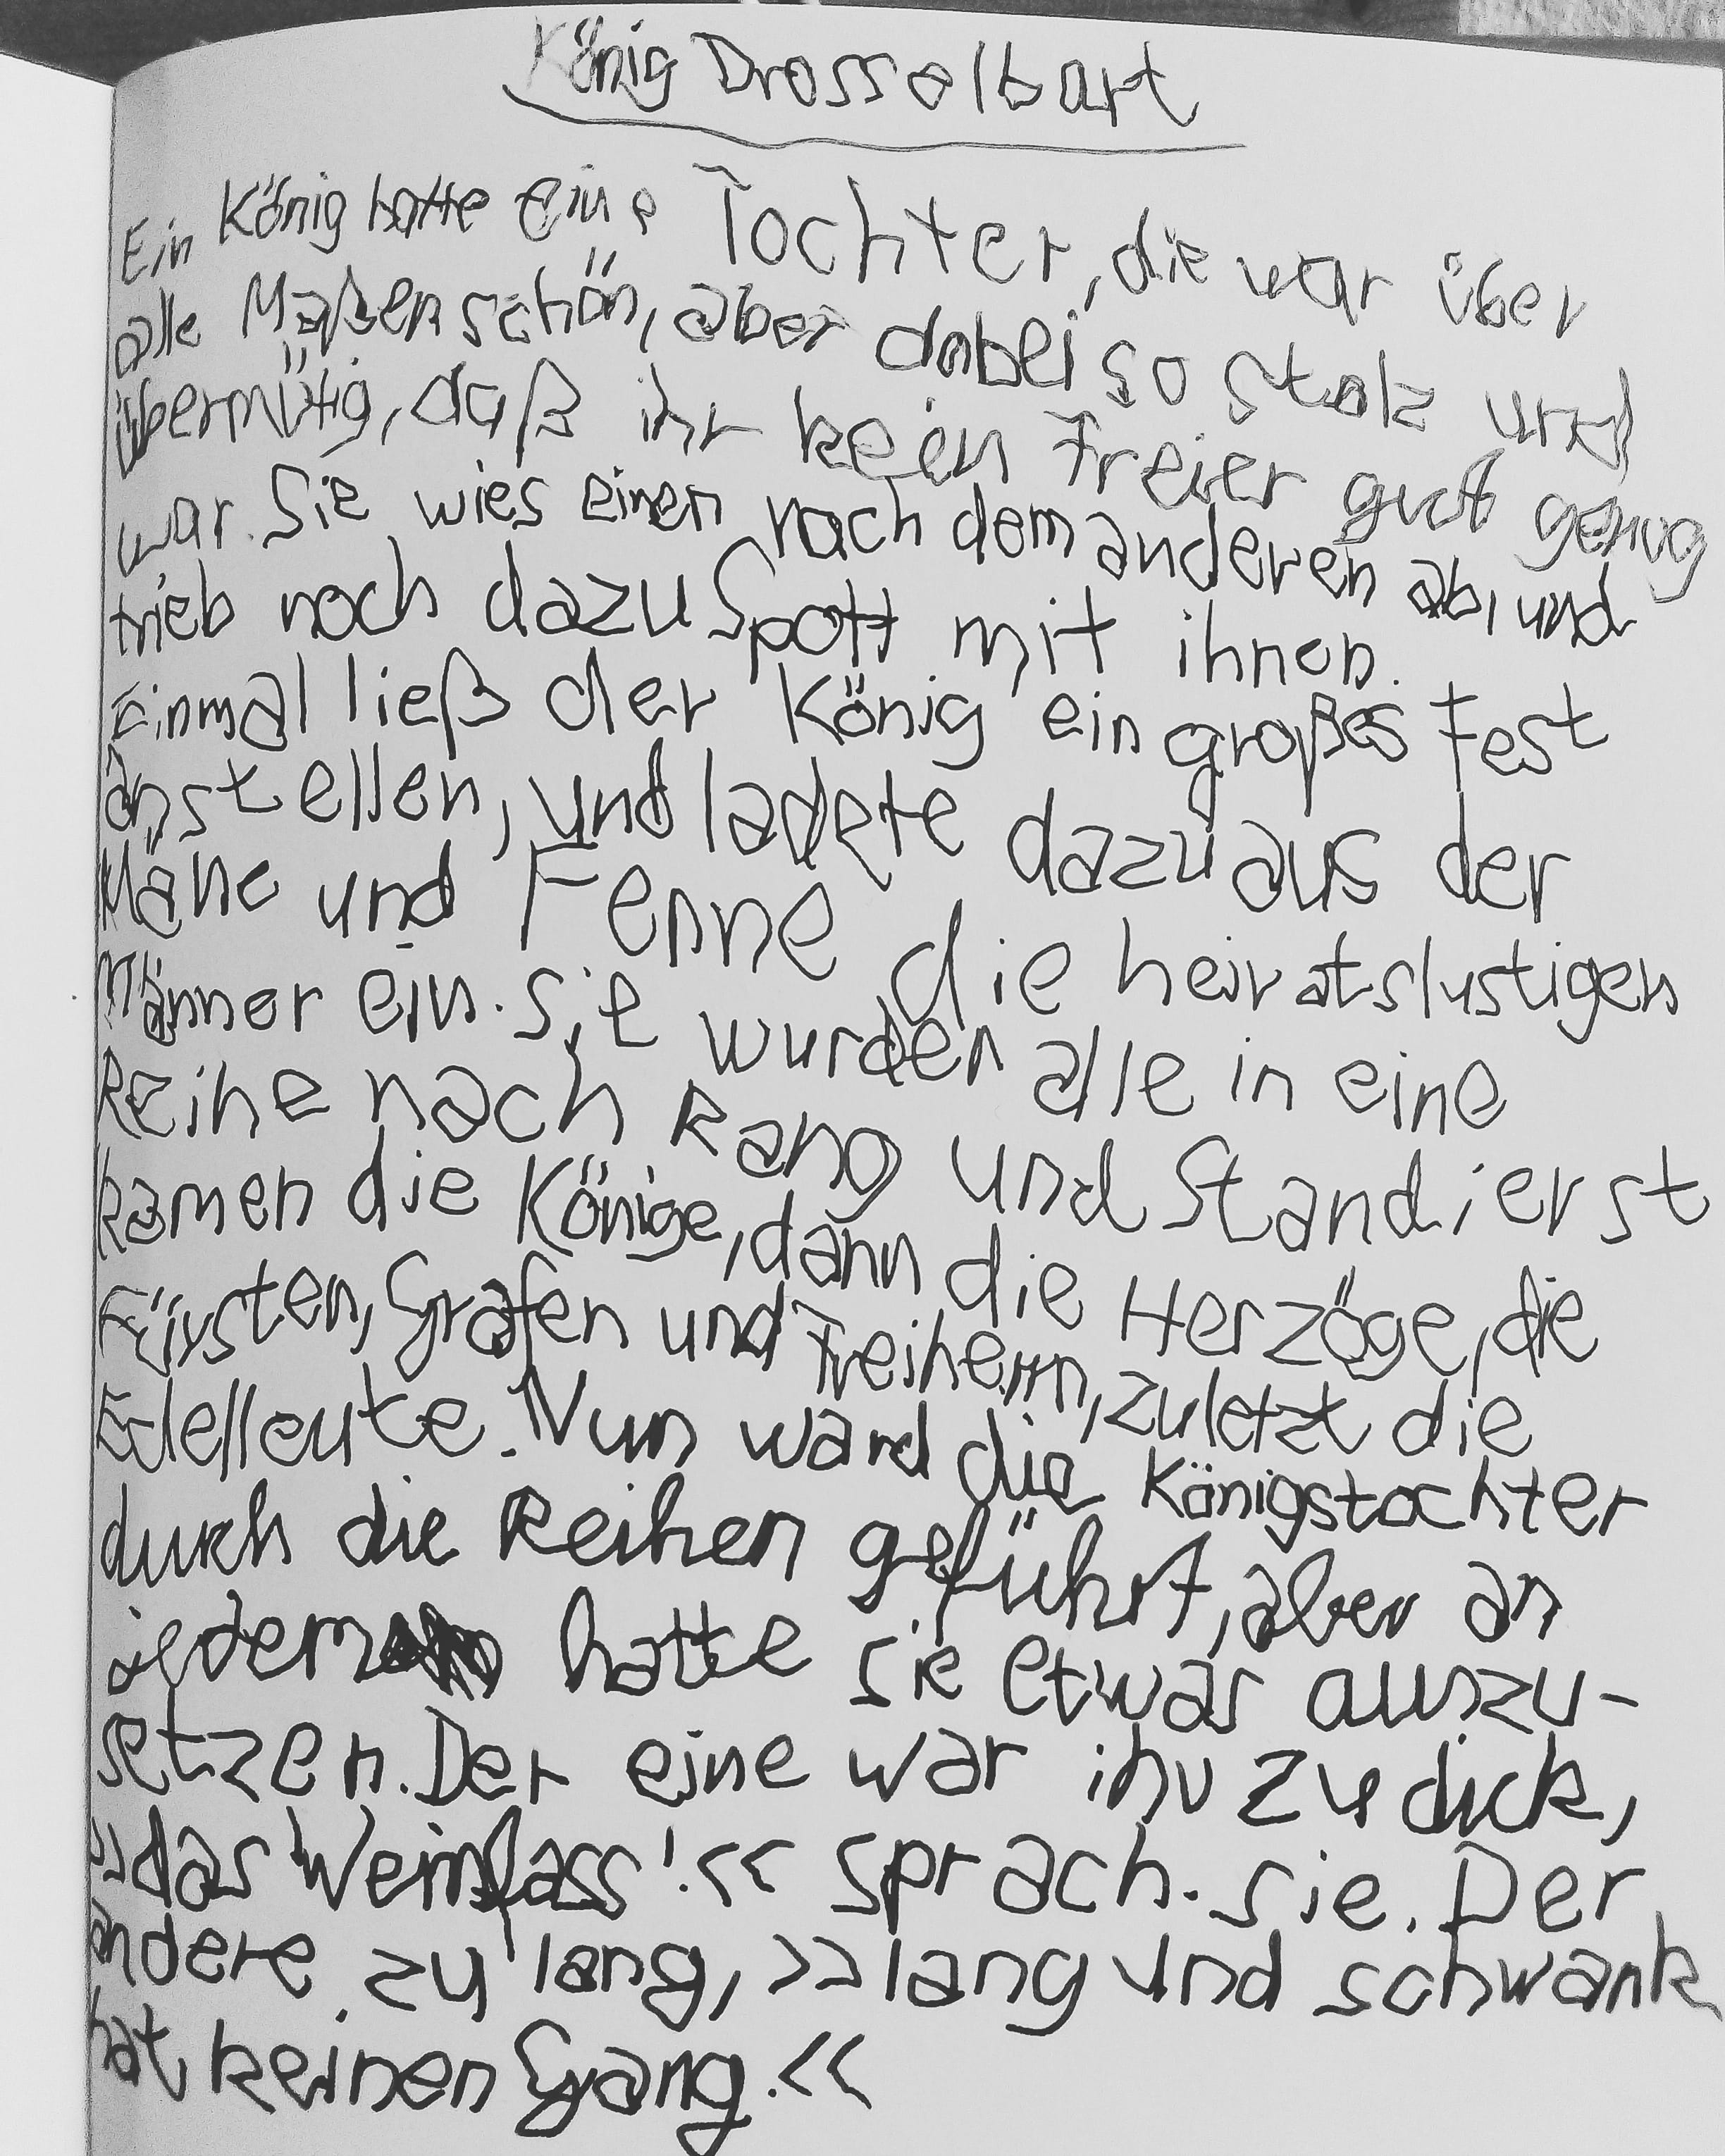 König Drosselbart
Ein König hatte eine Tochter, die war über
alle Maßen schön, aber dabei so stolz und
übermütig, daß ihr kein Freier gut genug
war. Sie wies einen nach dem anderen ab, und
trieb noch dazu Spott mit ihnen.
Einmal ließ der König ein großes Fest
anstellen, und ladete dazu aus der
Nähe und Fenne die heiratslustigen
Männer ein. Sie wurden alle in eine
Reihe nach Rang und Stand; erst
kamen die Könige, dann die Herzöge, die
Fürsten, Grafen und Freiherrn, zuletzt die
Edelleute. Nun ward die Königstochter
durch die Reihen geführt, aber an
jedem hatte sie etwas auszu-
setzen. Der eine war ihr zu dick,
»das Weinfass!« sprach sie. Der
andere zu lang, »lang und schwank
hat keinen Gang.«